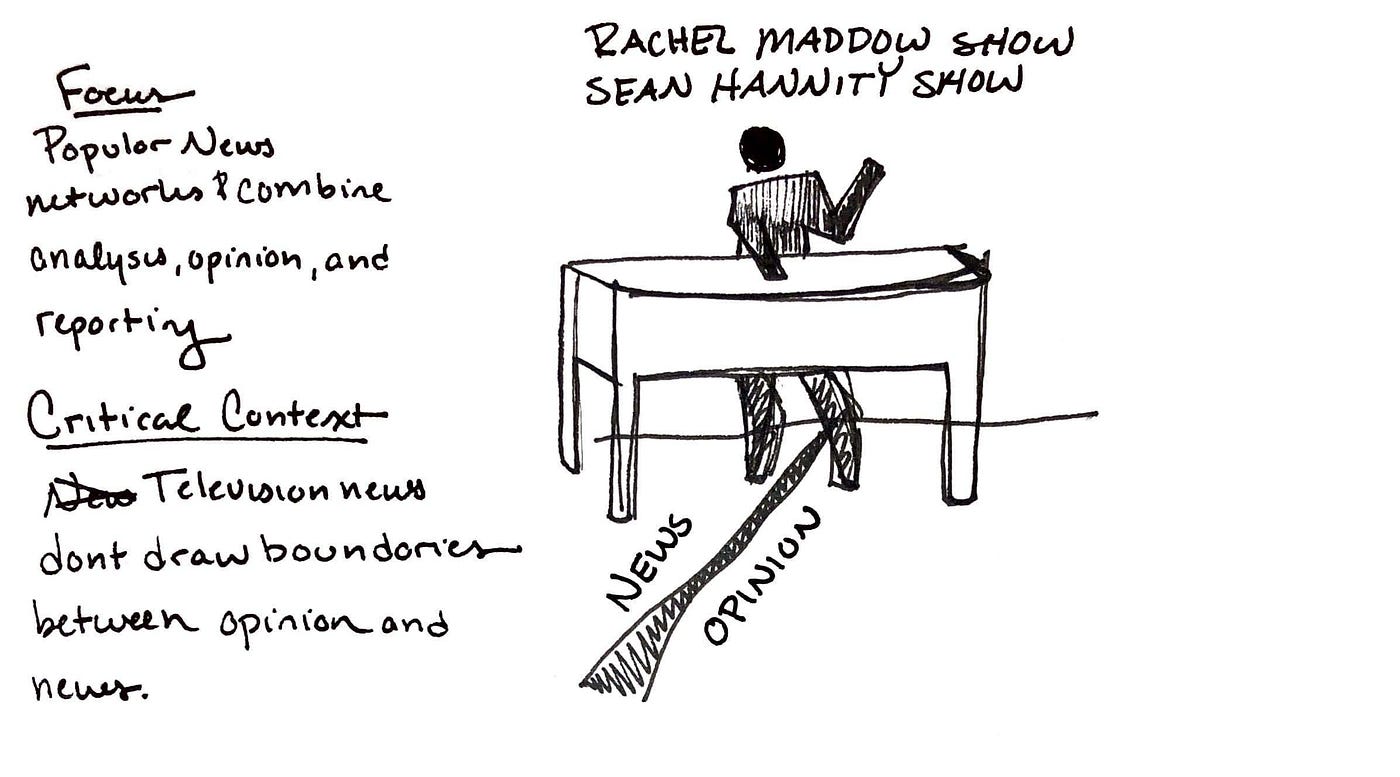 Focus
Popular News
networks & combine
analysis, opinion, and
reporting
Critical Context
News Television news
dont draw boundories
between opinion and
news.
RACHEL MADDOW SHOW
SEAN HANNITY SHOW
NEWS
OPINION